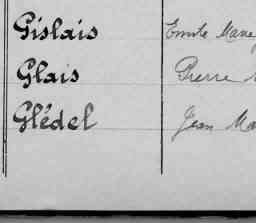 Gislais Emile Marie
Glais Pierre
Glédel Jean Ma